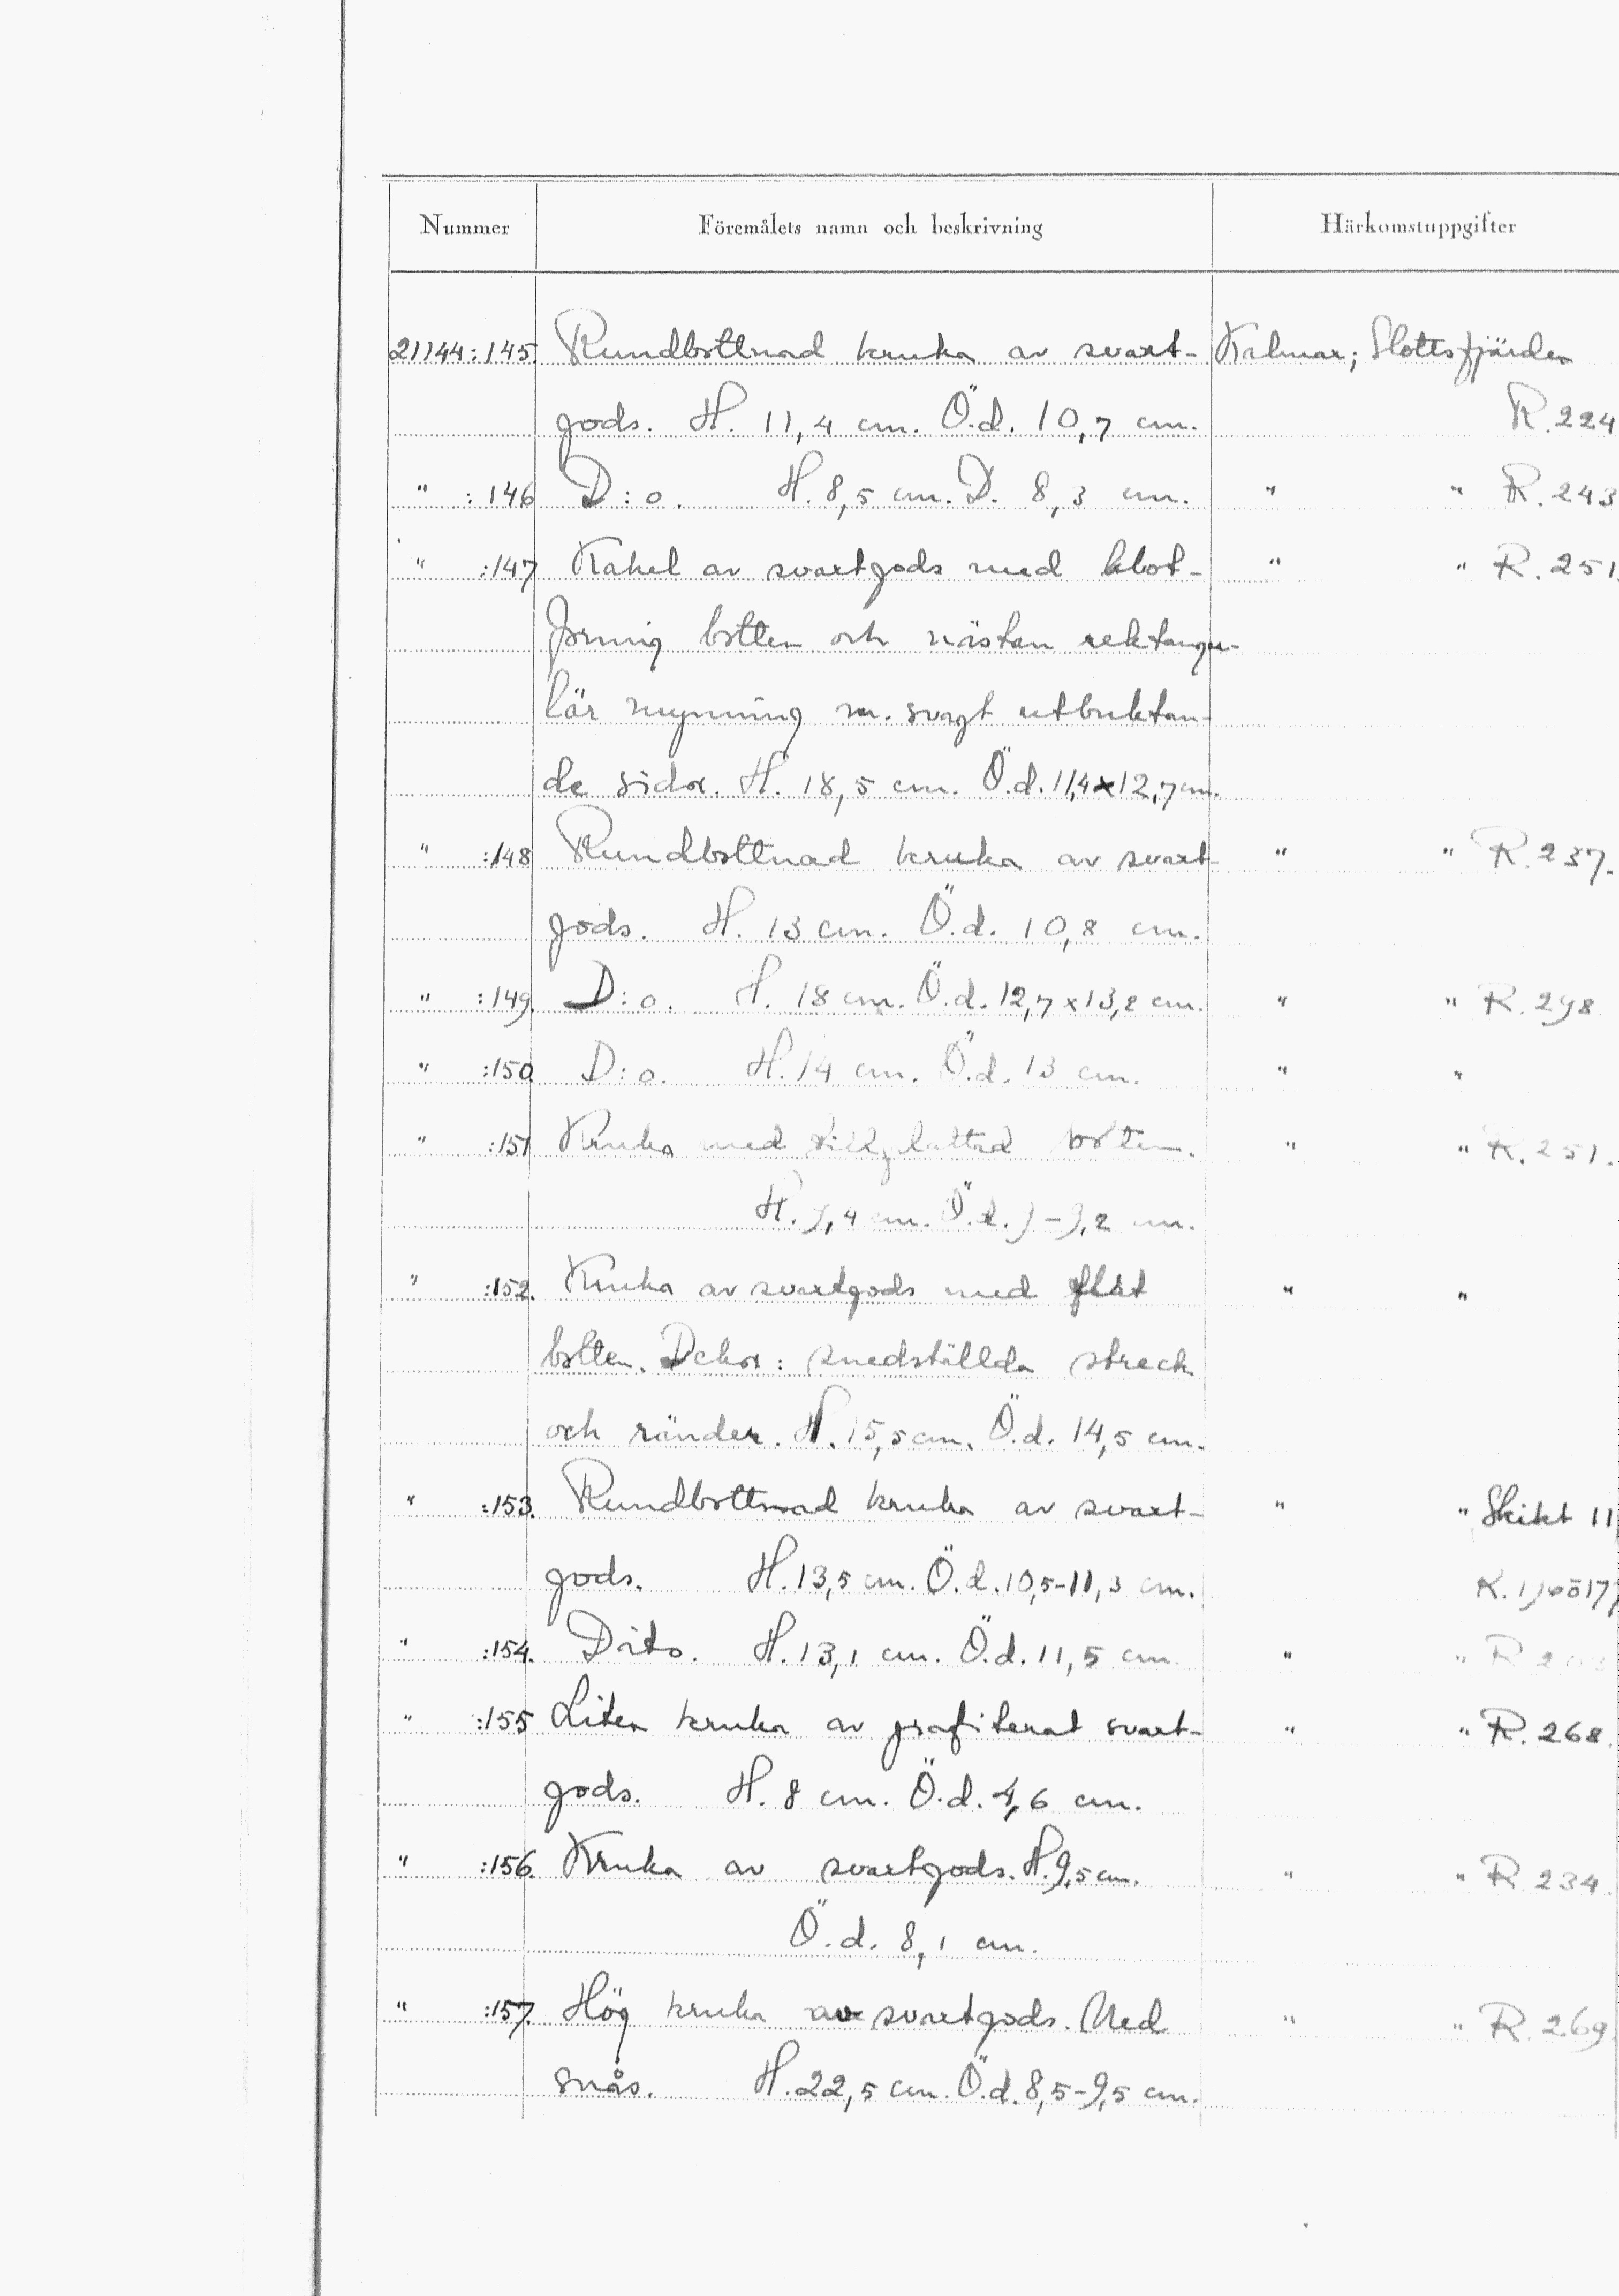 Nummer Föremålets namn och beskrivning Härkomstuppgifter
21144:145. Rundbottnad kruka av svart- Kalmar; Slottsfjärden
gods. H. 11,4 cm. Ö.d. 10,7 cm. R.224
" :146 D:o. H. 8,5 cm. D. 8,3 cm. " " R.243
" :147 Kakel av svartgods med klot- " " R.251.
formig botten och nästan rektangu-
lär mynning m. svagt utbuktan-
de sidor. H. 18,5 cm. Ö.d. 11,4x12,7 cm.
" :148 Rundbottnad kruka av svart- " " R.237.
gods. H. 13 cm. Ö.d. 10,8 cm.
" :149. D:o. H. 18 cm. Ö.d. 12,7x13,2 cm. " " R.298
" :150. D:o. H. 14 cm. Ö.d. 13 cm. " "
" :151 Kruka med tillplattad botten. " " R.251.
H. 9,4 cm. Ö.d. 9-9,2 cm.
" :152. Kruka av svartgods med flat " "
botten. Dekor: snedställda streck
och ränder. H. 15,5 cm. Ö.d. 14,5 cm.
" :153. Rundbottnad kruka av svart- " " Skikt 11
gods. H. 13,5 cm. Ö.d. 10,5-11,3 cm.
" :154. Dito. H. 13,1 cm. Ö.d. 11,5 cm. " " R
" :155 Liten kruka av grafiterat svart- " " R.268.
gods. H. 8 cm. Ö.d. 4,6 cm.
" :156. Kruka av svartgods. H. 9,5 cm. " " R 234.
Ö.d. 8,1 cm.
" :157. Hög kruka av svartgods. Med " " R.269.
snås. H. 22,5 cm. Ö.d. 8,5-9,5 cm.